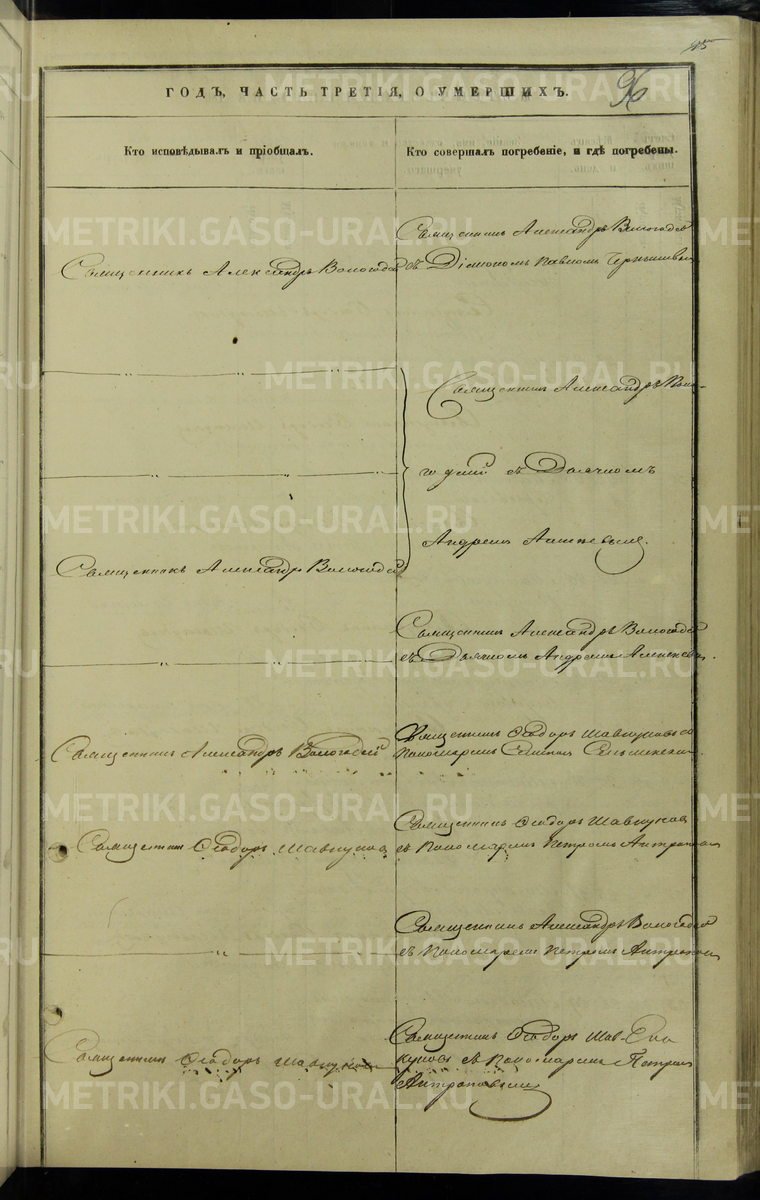 95
96
ГОДЪ, ЧАСТЬ ТРЕТІЯ, О УМЕРШИХЪ.
Кто исповѣдывалъ и пріобщалъ.
Кто совершалъ погребеніе, и гдѣ погребены.
Священникъ Александръ Вологодскій
Священникъ Александръ Вологодскій
съ Діакономъ Павломъ
Священникъ Александръ Воло-
годскій съ Дьячкомъ
Андреемъ
Священникъ Александръ Вологодскій
Священникъ Александръ Вологодскій
съ Дьячкомъ Андреемъ
Священникъ Александръ Вологодскій
Священникъ Ѳеодоръ Шавкуновъ съ
Пономаремъ
Священникъ Ѳеодоръ Шавкуновъ
Священникъ Ѳеодоръ Шавкуновъ
съ Пономаремъ Петромъ Антроповымъ
Священникъ Александръ Вологодскій
съ Пономаремъ Петромъ Антроповымъ
Священникъ Ѳеодоръ Шавкуновъ
Священникъ Ѳеодоръ Шав-
куновъ съ Пономаремъ Петромъ
Антроповымъ
METRIKI.GASO-URAL.RU